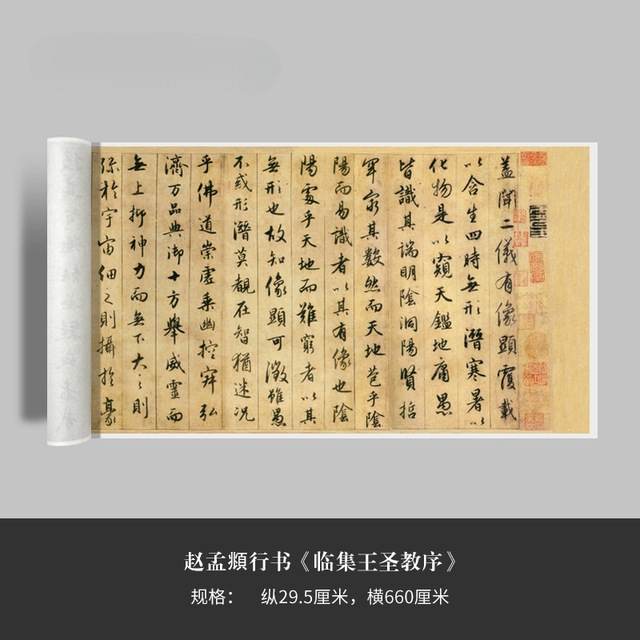 蓋聞二儀有像顯覆載
以含生四時無形潛寒暑以
化物是以窺天鑑地庸愚
皆識其端明陰洞陽賢哲
罕窮其數然而天地苞乎陰
陽而易識者以其有像也陰
陽處乎天地而難窮者以其
無形也故知像顯可徵雖愚
不惑形潛莫覩在智猶迷况
乎佛道崇虛乘幽控寂弘
濟万品典御十方舉威靈而
無上抑神力而無下大之則
彌於宇宙細之則攝於豪
赵孟頫行书《临集王圣教序》
规格： 纵29.5厘米，横660厘米